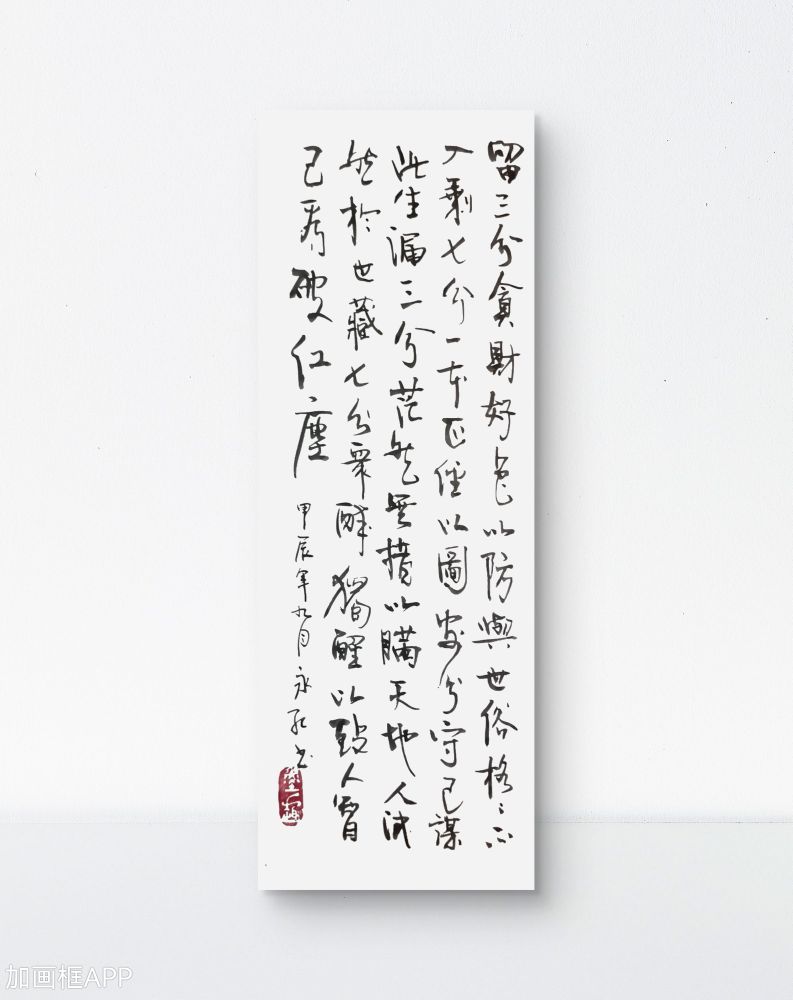 留三分貪財好色以防與世俗格〻不
入剩七分一本正經以圖安分守己謀
此生漏三分茫然無措以瞞天地人渾
然於世藏七分衆醉獨醒以致人智
己看破红塵
甲辰年九月永紅书
加画框APP